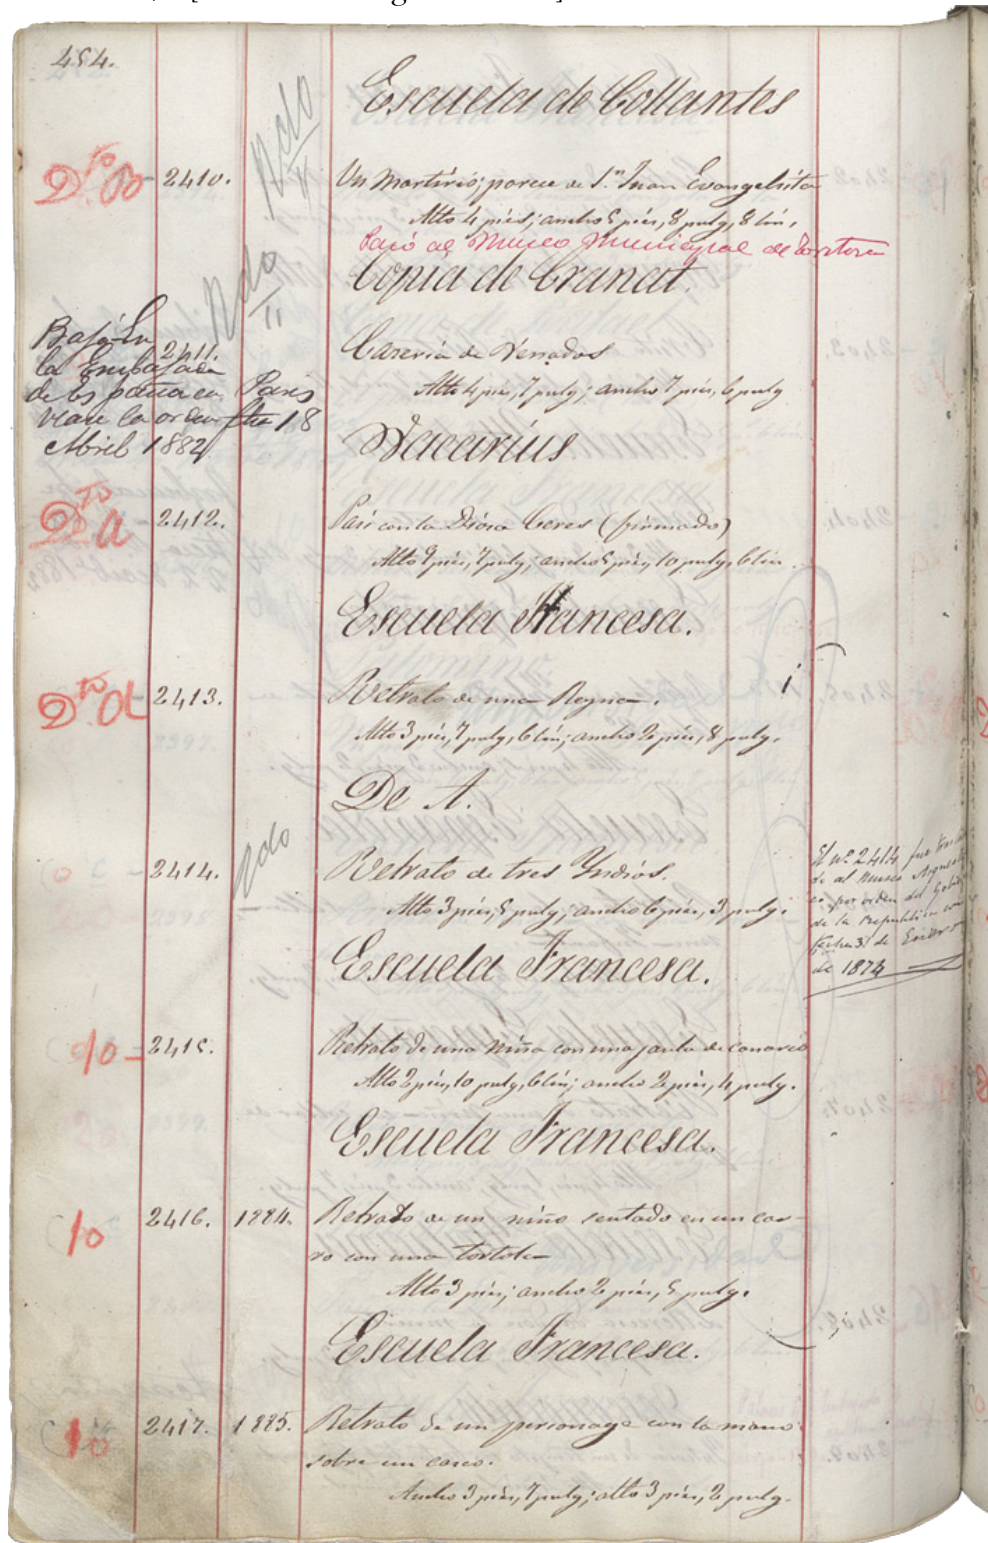 454.
Escuela de Collantes
Dto B 2410. Un Martirio; parece de S.n Juan Evangelista
Alto 4 piés; ancho 5 piés, 8 pulg, 8 lin.
Pasó al Museo Municipal de
Copia de Cranat.
2411. Caseria de Venados
Alto 4 piés, 7 pulg; ancho 7 piés, 6 pulg
Bajó En
la Embajada
de España en Paris
viase la orden fha 18
Abril 1882
Nacarius
Dto A 2412. Pais con la Diosa Ceres (firmado)
Alto 9 piés, 7 pulg; ancho 5 piés, 10 pulg, 6 lin.
Escuela Francesa.
Dto A 2413. Retrato de una Reyna.
Alto 3 piés, 7 pulg, 6 lin; ancho 2 piés, 8 pulg.
De A.
2414. Retrato de tres Yndios.
Alto 3 piés, 5 pulg; ancho 6 piés, 3 pulg.
El nº 2414 fue
al Museo
por orden del
de la Republica con
fecha 31 de Enero
de 1874
Escuela Francesa.
10 2415. Retrato de una niña con una jaula de canario
Alto 2 piés, 10 pulg, 6 lin; ancho 2 piés, 4 pulg.
Escuela Francesa.
10 2416. 1884. Retrato de un niño sentado en un car-
ro con una tortola
Alto 3 piés; ancho 2 piés, 5 pulg.
Escuela Francesa.
10 2417. 1885. Retrato de un personage con la mano
sobre un casco.
Ancho 3 piés, 7 pulg; alto 3 piés, 2 pulg.